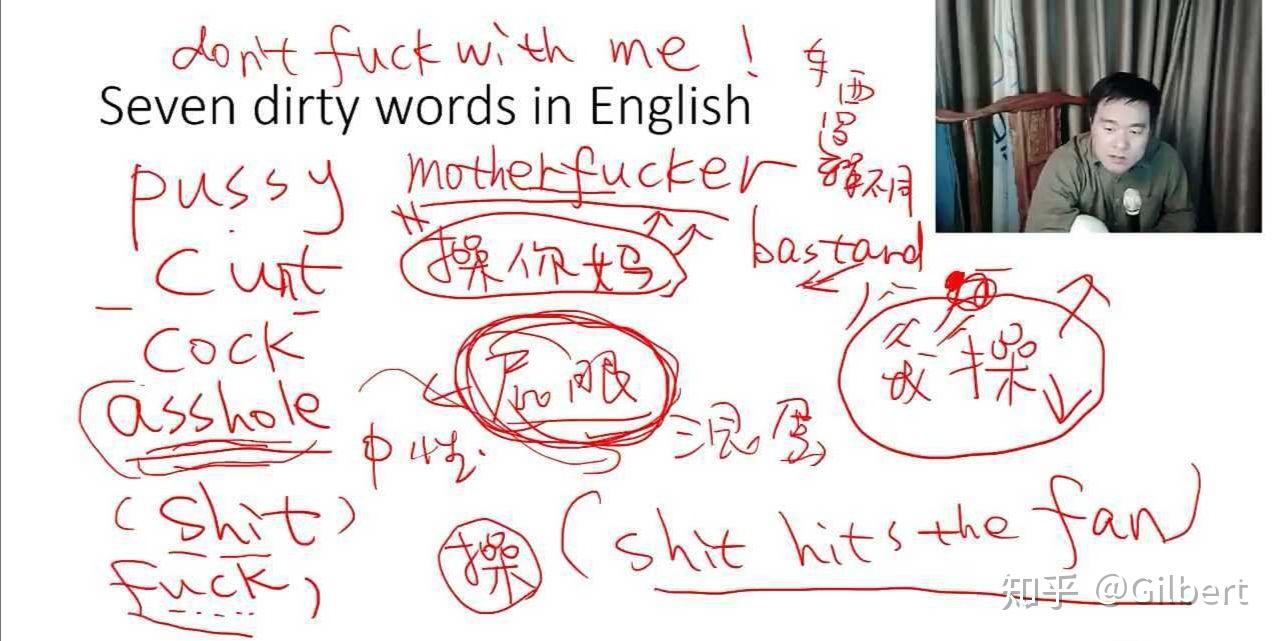 don't fuck with me !
Seven dirty words in English
pussy motherfucker 不同
操你妈 bastard
cunt
cock 屁眼 操
asshole 中性. 混蛋
(shit)
fuck, 操 (shit hits the fan)
知乎 @Gilbert